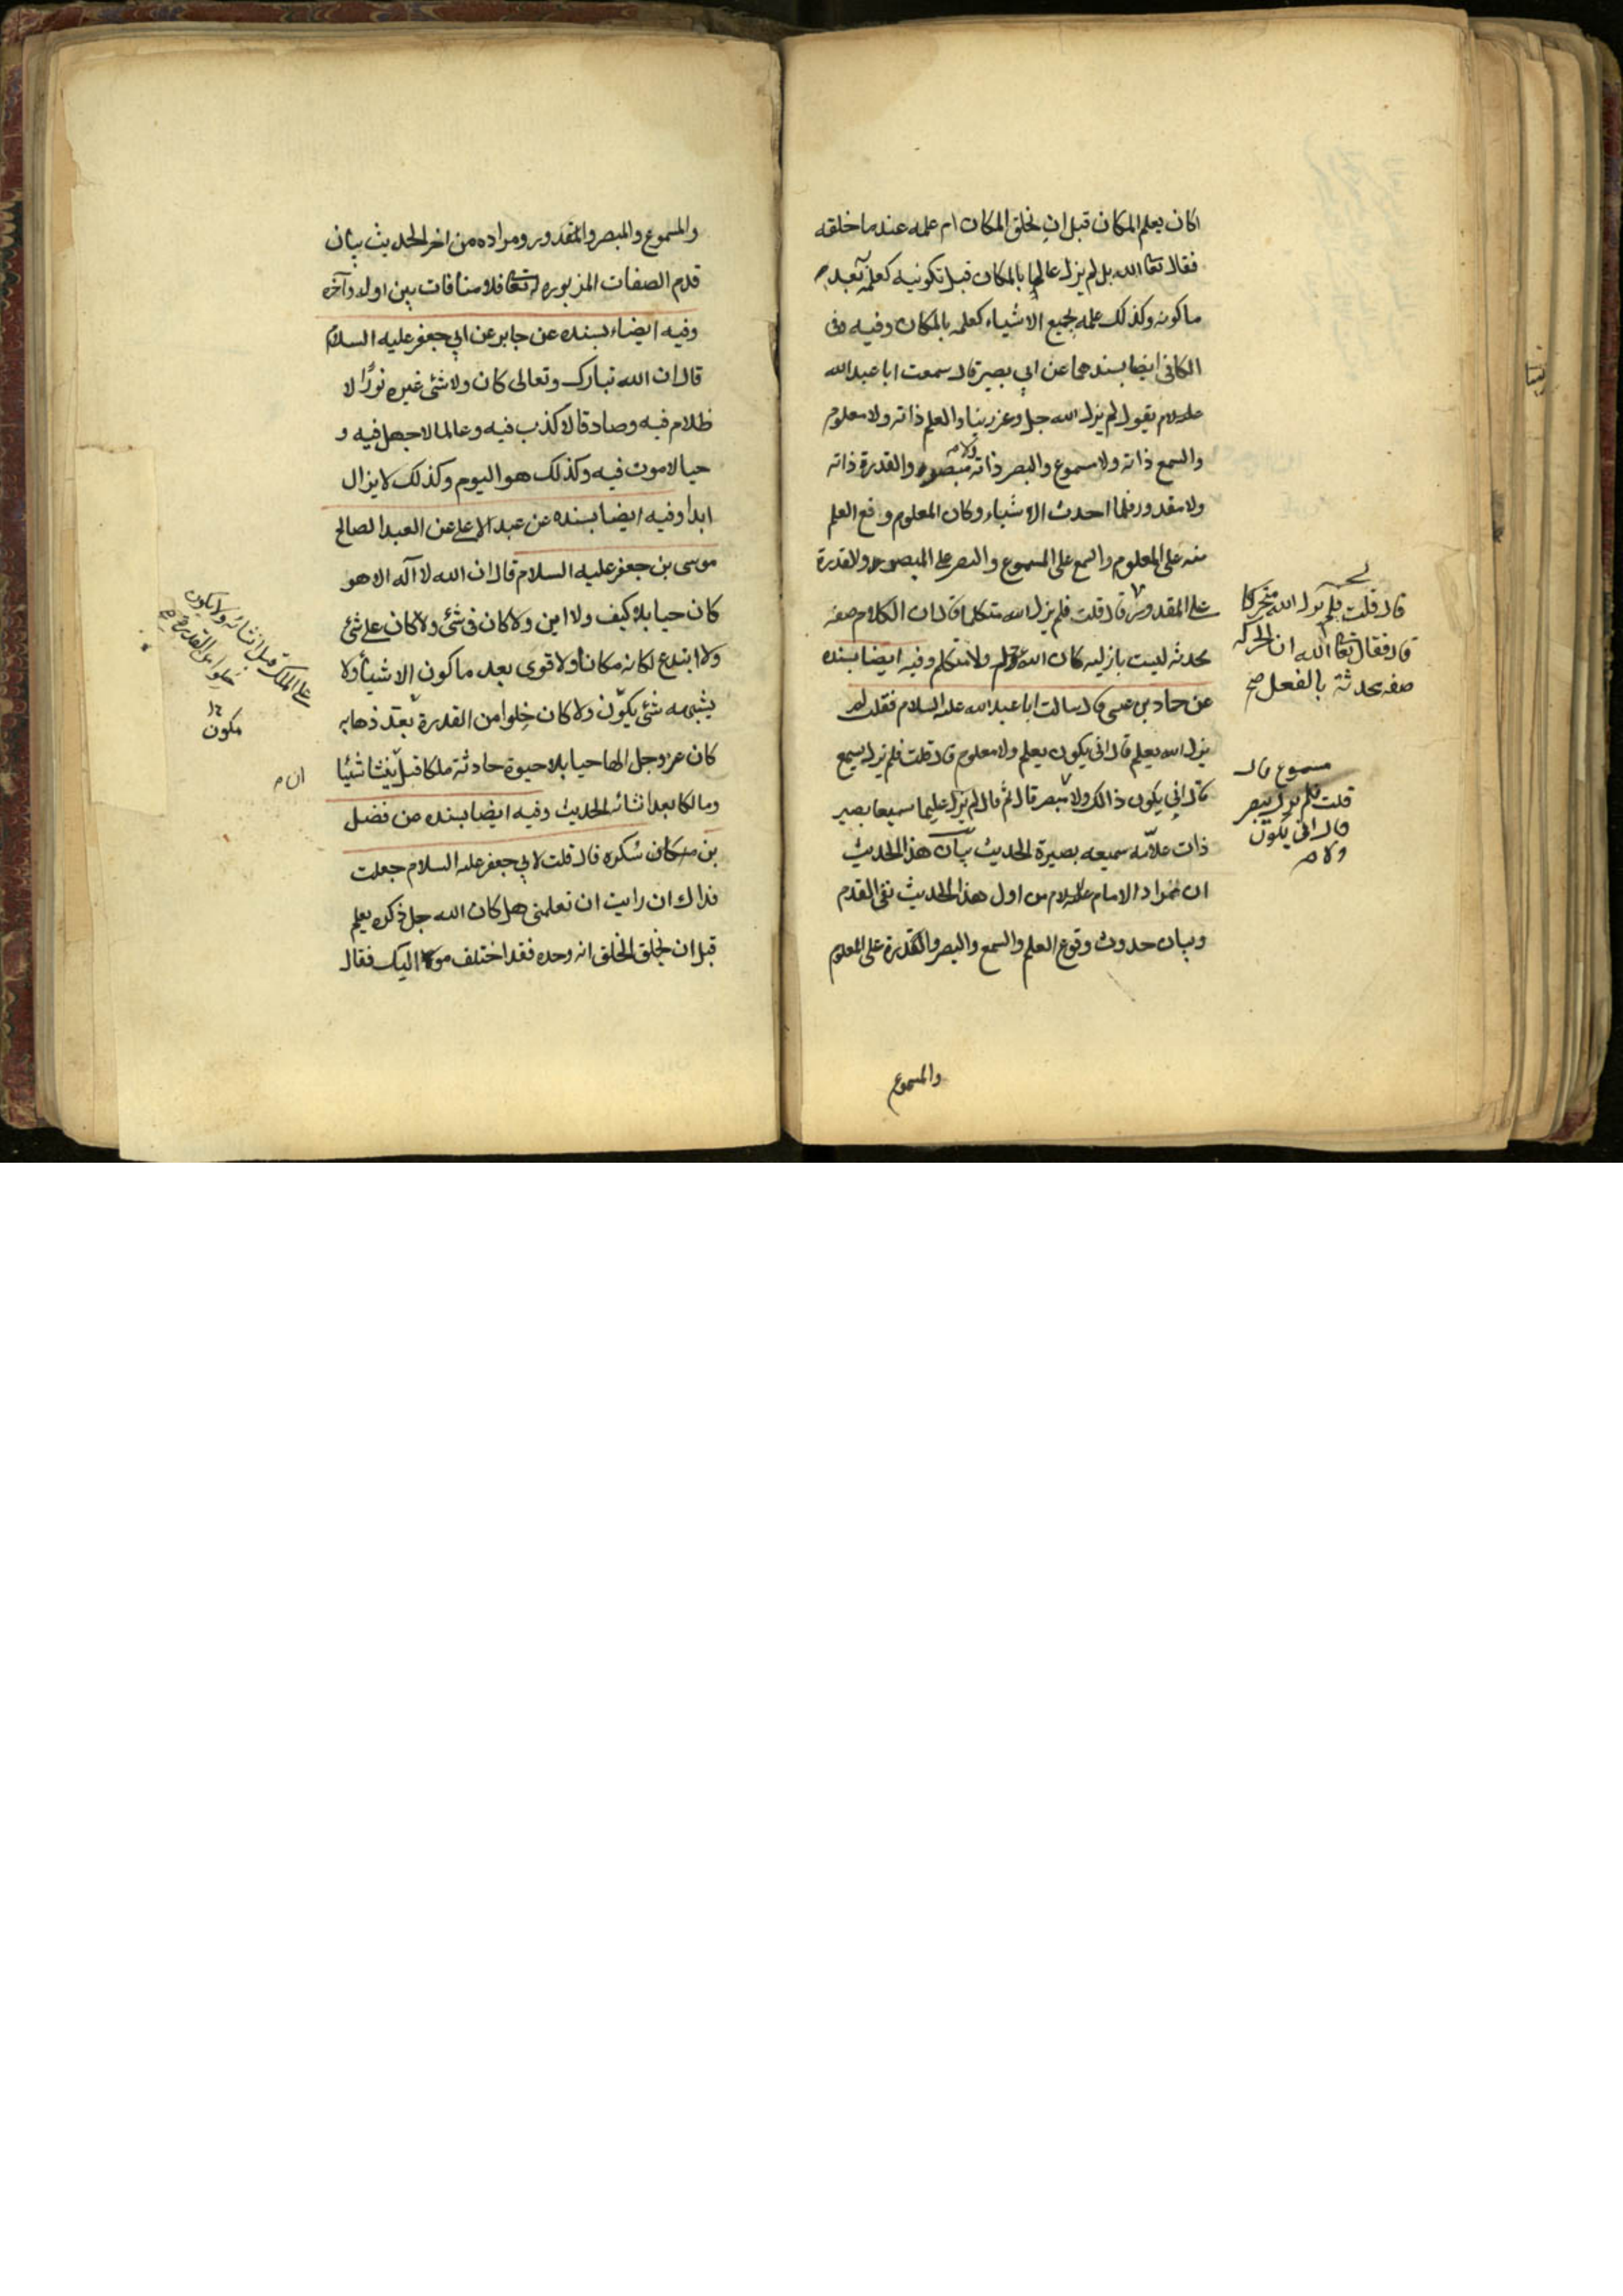 اكان يعلم المكان قبل ان يخلق المكان ام علمه عندما خلقه
فقال تعا الله بل لم يزل عالما بالمكان قبل تكوينه كعلمه به بعد
ما كونه وكذلك علمه بجميع الاشياء كعلمه بالمكان وفيه وفى
الكافى ايضا بسندهما عن ابي بصير قال سمعت ابا عبدالله
عليه السلام يقول لم يزل الله جل وعز ربنا والعلم ذاته ولا معلوم
والسمع ذاته ولا مسموع والبصر ذاته ولا مبصر والقدرة ذاته
ولا مقدور فلما احدث الاشياء وكان المعلوم وقع العلم
منه على المعلوم والسمع على المسموع والبصر على المبصر والقدرة
على المقدور قال قلت فلم يزل الله متكلما قال ان الكلام صفه
محدثه ليست بازليه كان الله عز وجل ولا متكلم وفيه ايضا بسنده
عن حماد بن عيسى قال سالت ابا عبدالله عليه السلام فقلت لم
يزل الله يعلم قال انى يكون يعلم ولا معلوم قال قلت فلم يزل يسمع
قال انى يكون ذالك ولا مبصر قال ثم قال لم يزل عليما سميعا بصير
ذات علامه سميعه بصيرة الحديث بيان هذا الحديث
ان مراد الامام عليه السلام من اول هذا الحديث نفى القدم
وبيان حدوث وقوع العلم والسمع والبصر والقدرة على المعلوم
والمسموع
قال قلت فلم يزل الله متحركا
قال فقال تعا الله ان الحركه
صفه محدثة بالفعل صح
مسموع قال
قلت فلم يزل يبصر
قال انى يكون
ولا
والمسموع والمبصر والمقدور ومراده من اخر الحديث بيان
قدم الصفات المزبوره له تعا فلا منافات بين اوله وآخره
وفيه ايضاء بسنده عن جابر عن ابي جعفر عليه السلام
قال ان الله تبارك وتعالى كان ولا شئ غيره نورًا لا
ظلام فيه وصادقا لا كذب فيه وعالما لا جهل فيه و
حيا لا موت فيه وكذلك هو اليوم وكذلك لا يزال
ابدا وفيه ايضا بسنده عن عبد الاعلى عن العبد الصالح
موسى بن جعفر عليه السلام قال ان الله لا آله الا هو
كان حيا بلا كيف ولا اين ولا كان فى شئ ولا كان على شئ
ولا ابتدع لكانه مكانا ولا قوى بعد ما كون الاشيأ ولا
يشبهه شئ يكوّن ولا كان خلوا من القدرة بعد ذهابه
كان عز وجل الها حيا بلا حيوة حادثة ملكا قبل ينشا شيئا
ومالكا بعد انشائه الحديث وفيه ايضا بسنده من فضل
بن سكره قال قلت لابي جعفر عليه السلام جعلت
فداك ان رايت ان تعلمنى هل كان الله جل ذكره يعلم
قبل ان يخلق الخلق انه وحده فقد اختلف مواليك فقال
على الملك قبل انشائه ولا يكون
خلوا من القدرة
مكون
ان